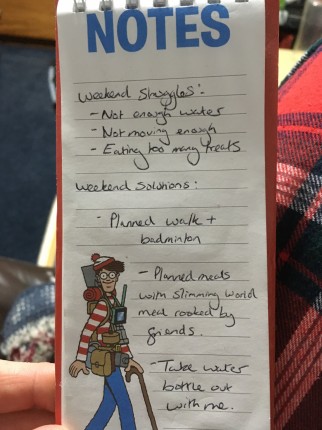 NOTES
Weekend Struggles:
- Not enough water
- Not moving enough
- Eating too many treats
Weekend Solutions:
- Planned walk +
badminton
- Planned meals
with Slimming World
meal cooked by
friends.
- Take water
bottle out
with me.